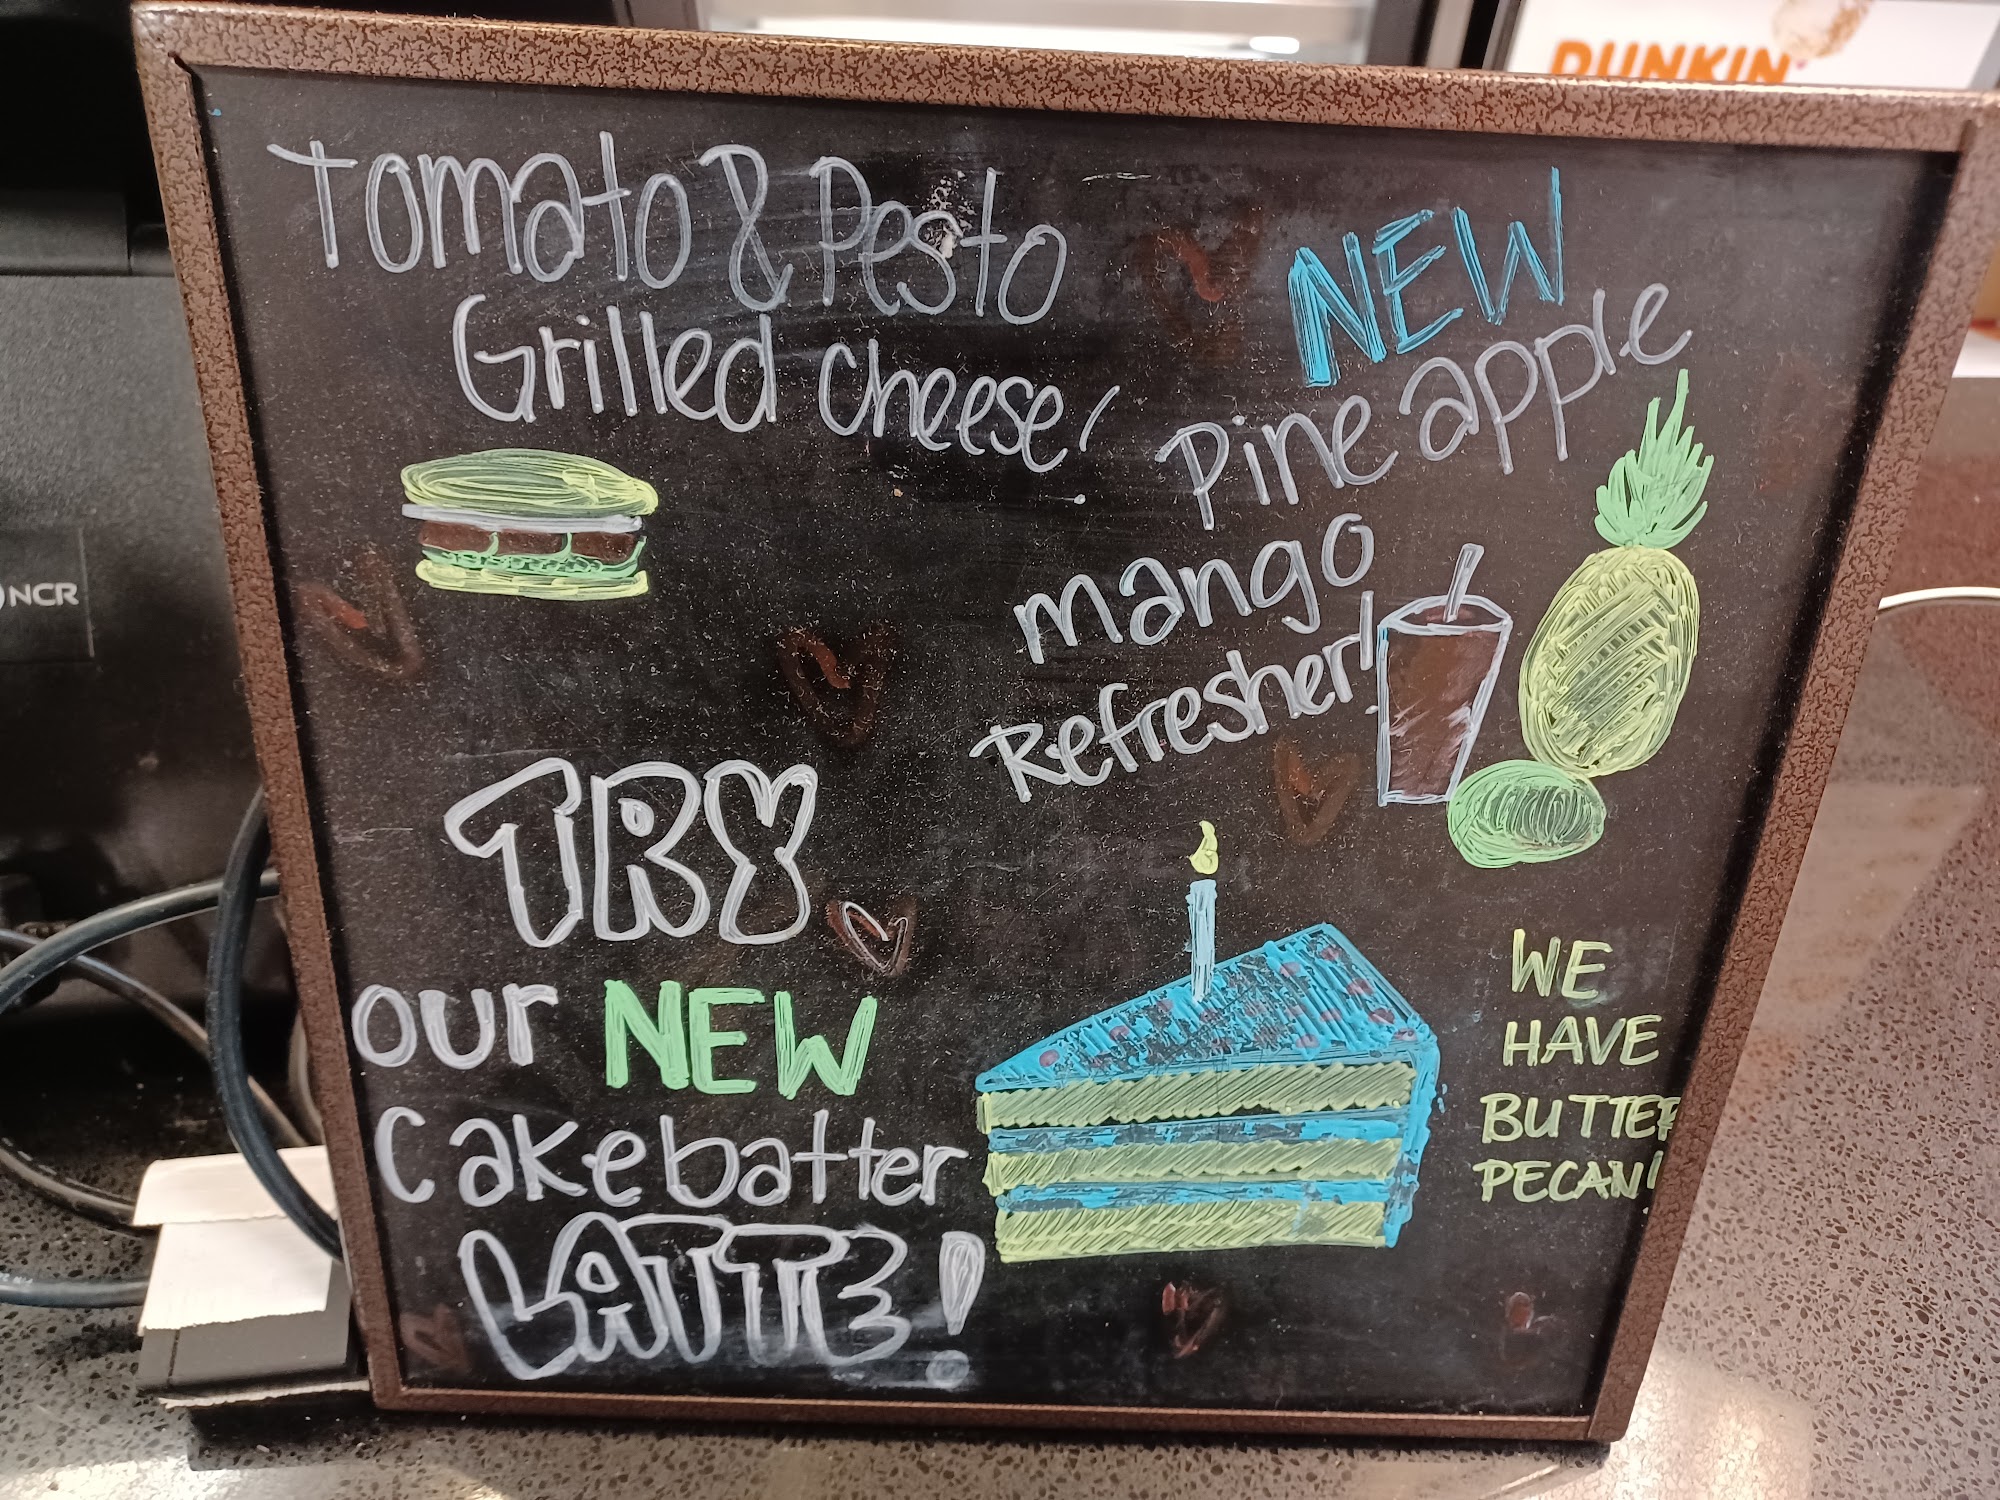 DUNKIN'
NCR
Tomato & Pesto
Grilled cheese!
NEW
Pineapple
mango
Refresher!
TRY
our NEW
Cakebatter
LATTE!
WE
HAVE
BUTTER
PECAN!